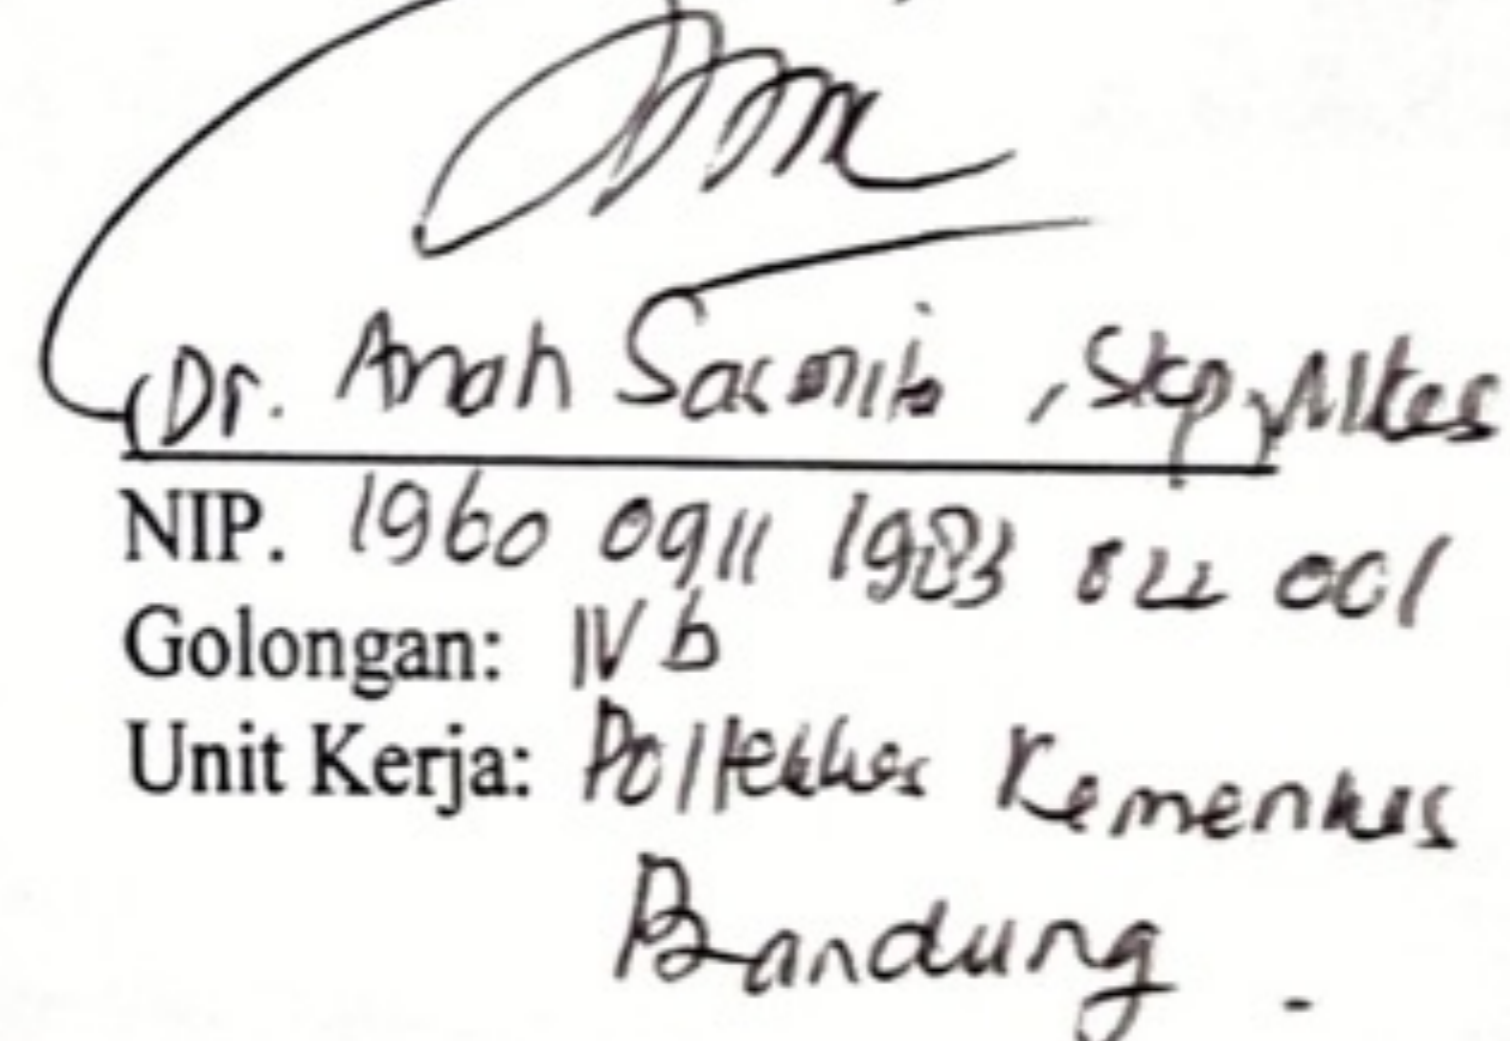 (Dr. Anah Sasmita, Skp, MKes
NIP. 1960 0911 1983 022 001
Golongan: IV b
Unit Kerja: Poltekkes Kemenkes
Bandung.